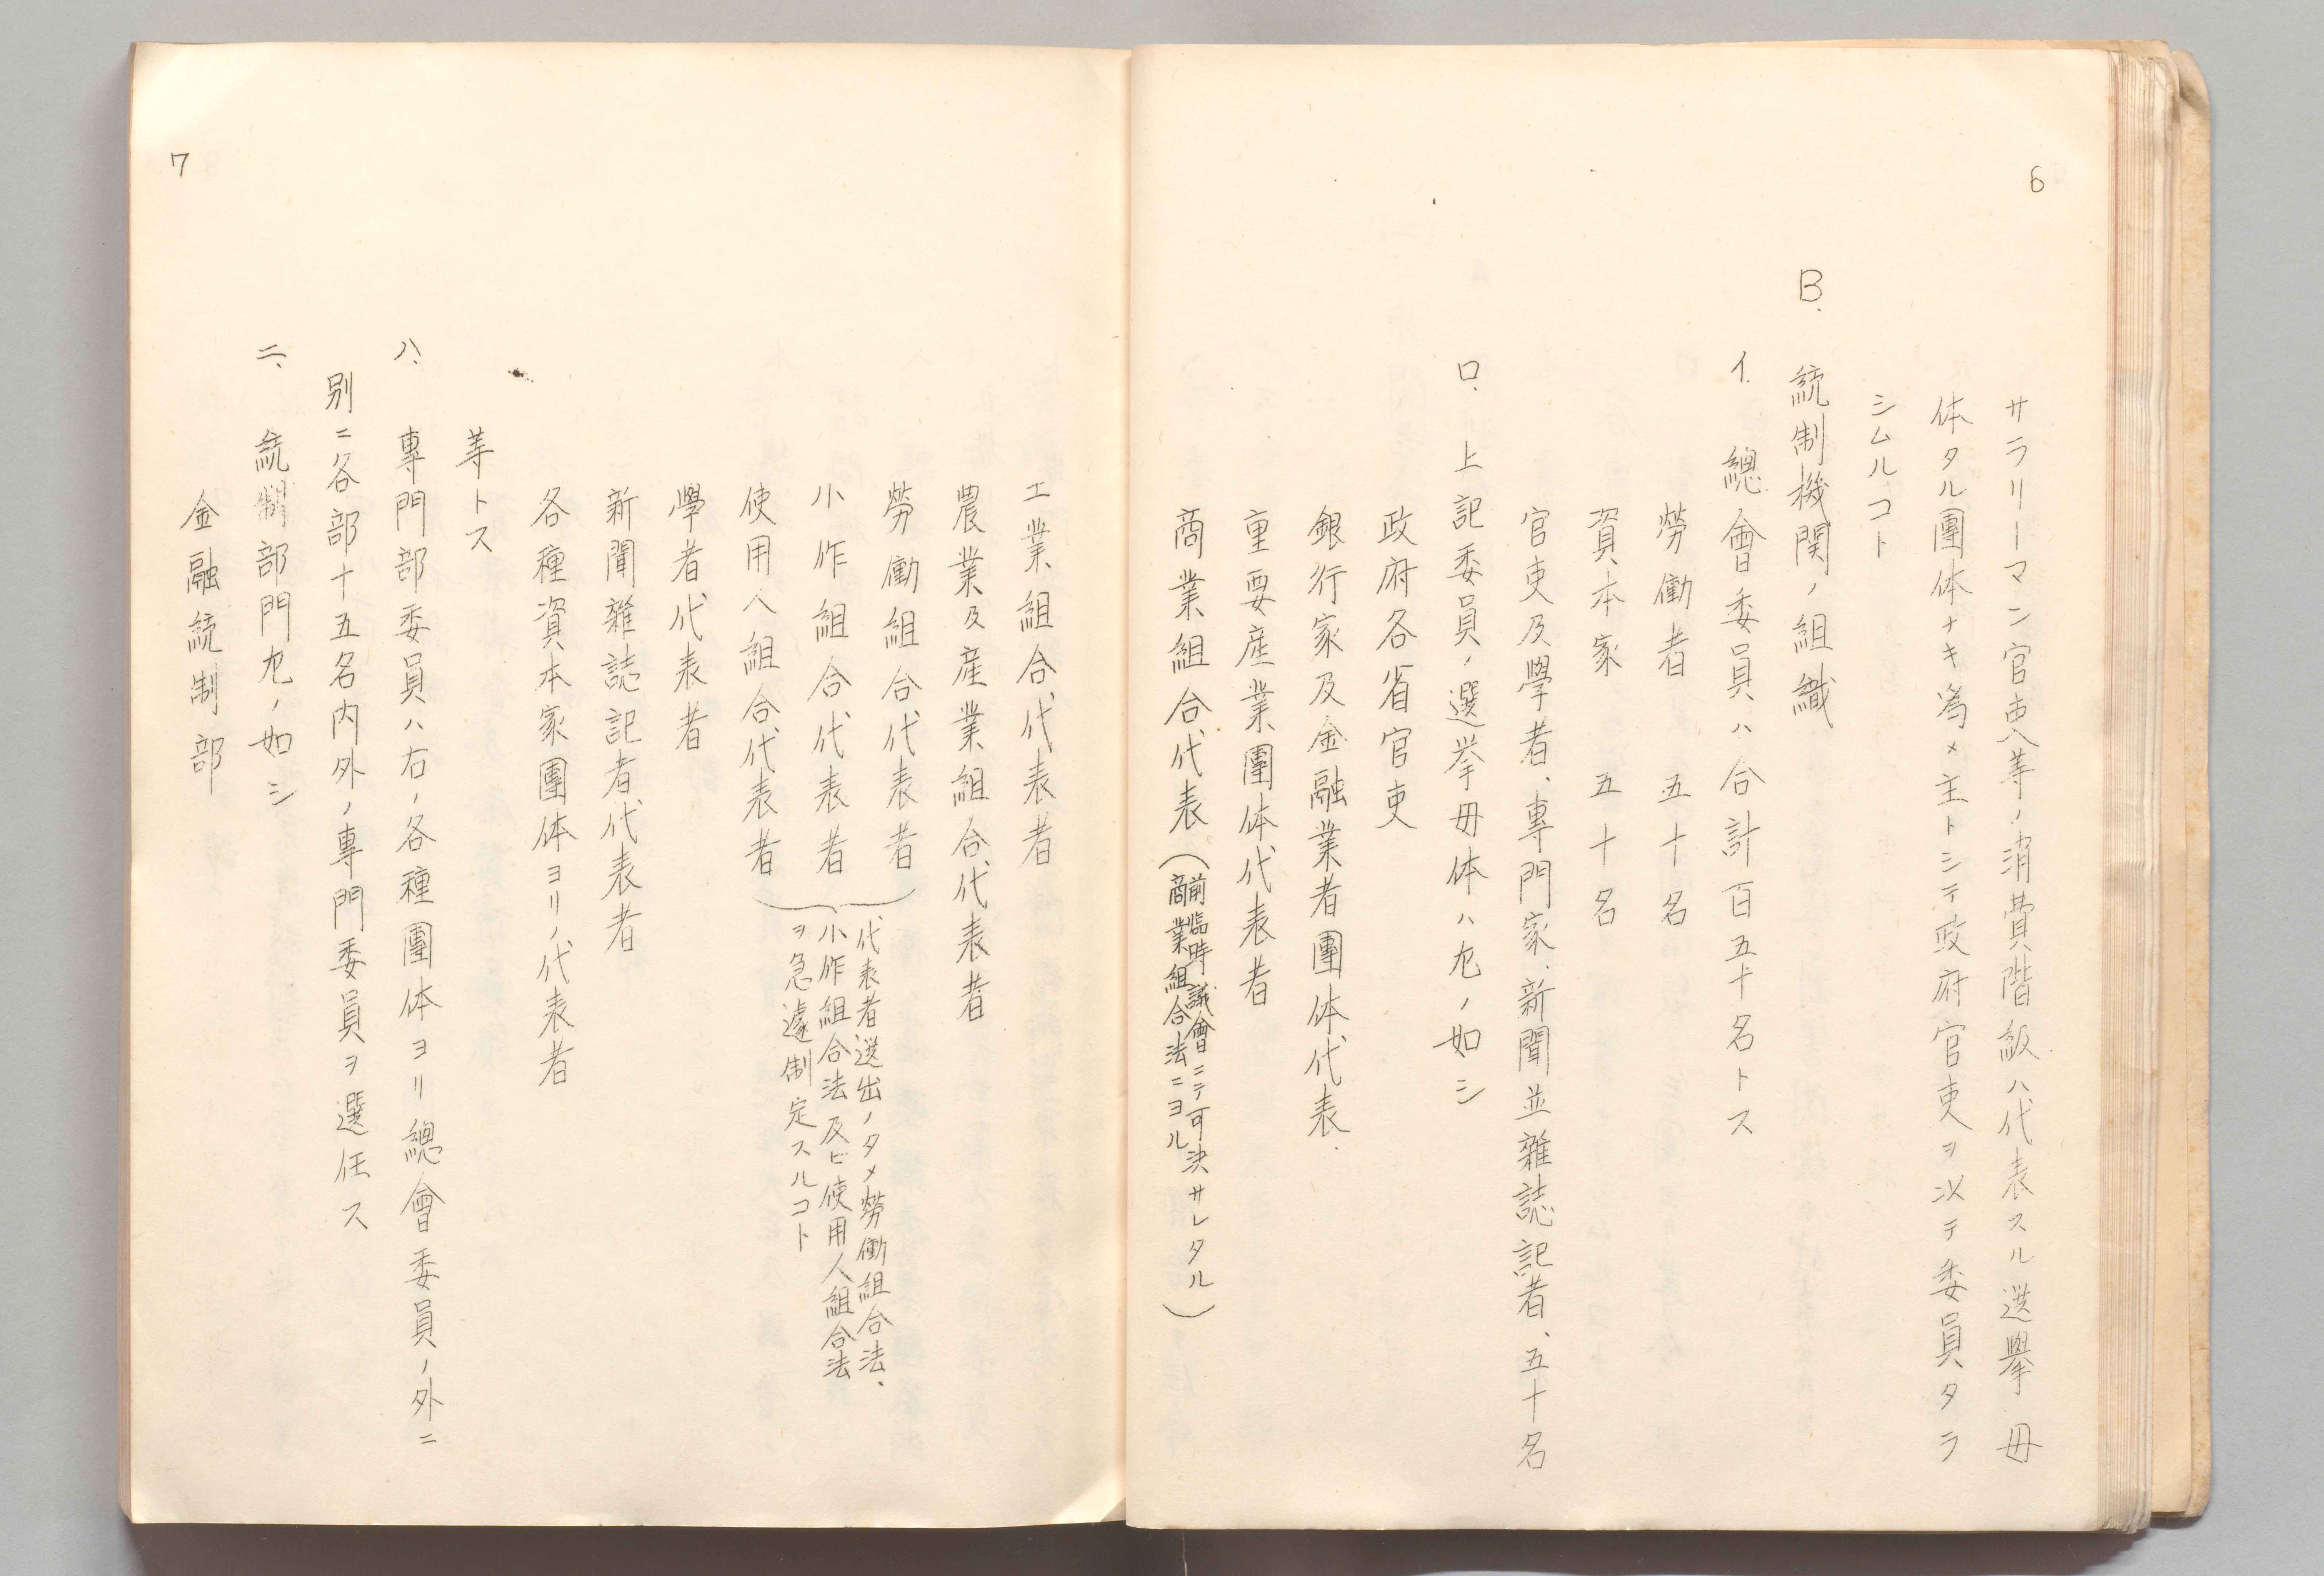 6
サラリーマン官吏等ノ消費階級ハ代表スル選擧母
体タル團体ナキ爲メ主トシテ政府官吏ヲ以テ委員タラ
シムルコト
B. 統制機関ノ組織
イ. 總會委員ハ合計百五十名トス
勞働者 五十名
資本家 五十名
官吏及學者、專門家、新聞並雜誌記者、五十名
ロ. 上記委員ノ選挙母体ハ左ノ如シ
政府各省官吏
銀行家及金融業者團体代表.
重要産業團体代表者
商業組合代表(前臨時議會ニテ可決サレタル
商業組合法ニヨル)
工業組合代表者
農業及産業組合代表者
勞働組合代表者
小作組合代表者
使用人組合代表者
代表者選出ノタメ勞働組合法、
小作組合法及ビ使用人組合法
ヲ急遽制定スルコト
學者代表者
新聞雜誌記者代表者
各種資本家團体ヨリノ代表者
等トス
ハ. 專門部委員ハ右ノ各種團体ヨリ總會委員ノ外ニ
別ニ各部十五名内外ノ專門委員ヲ選任ス
ニ. 統制部門左ノ如シ
金融統制部
7